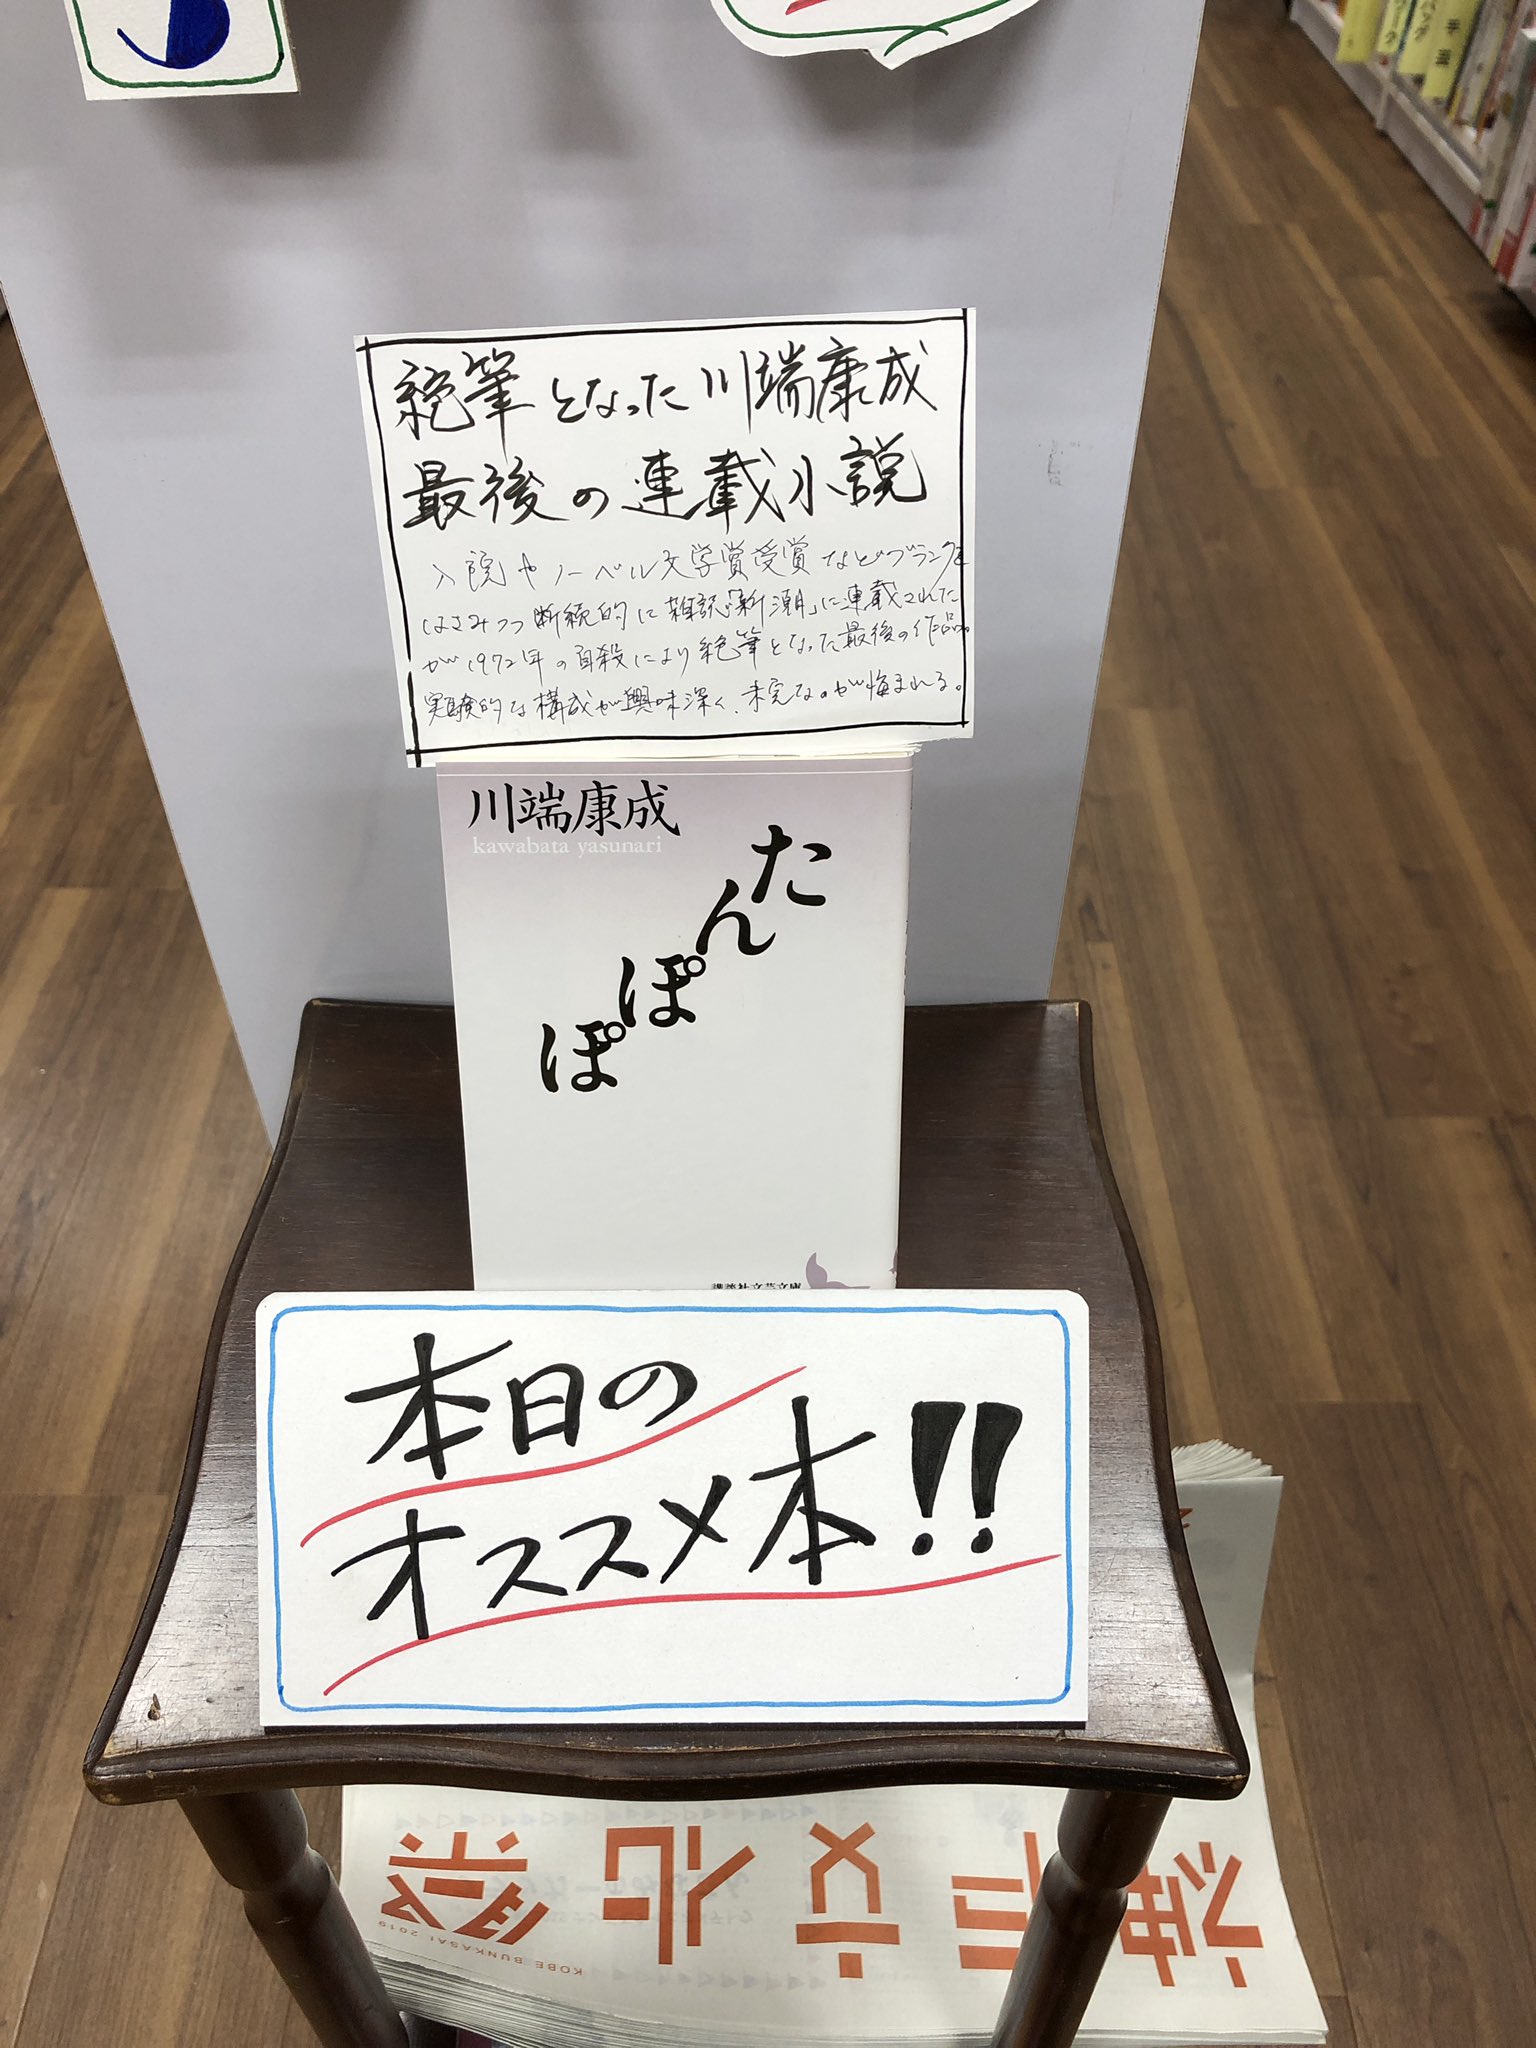 絶筆となった川端康成
最後の連載小説
入院やノーベル文学賞受賞などブランクを
はさみつつ断続的に雑誌「新潮」に連載された
が1972年の自殺により絶筆となった最後の作品。
実験的な構成が興味深く、未完なのが悔まれる。
川端康成
kawabata yasunari
たんぽぽ
講談社文芸文庫
本日の
オススメ本!!
神戸文化祭
KOBE BUNKASAI 2019